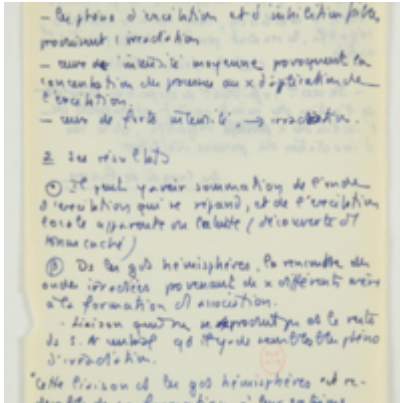 - Les phéno d'excitation et d'inhibition faible
produisent l'irradiation
- ceux de intensité moyenne provoquent la
concentration du processus au x d'application de
l'excitation.
- ceux de forte intensité → irradiation.
2 Les résultats
① Il peut y avoir sommation de l'onde
d'excitation qui se répand, et de l'excitation
locale apparente ou latente (découverte d'1
tonus caché)
② Ds les gds hémisphères, la rencontre des
ondes irradiées provenant de x différents mène
à la formation d'1 association.
- Liaison qui ne se produit pas ds le reste
du S.N. qd il y a de semblables phéno
d'irradiation.
"Cette liaison ds les gds hémisphères est re-